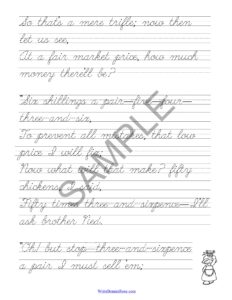 So that's a mere trifle; now then
let us see,
At a fair market price, how much
money there'll be?
"Six shillings a pair—five—four—
three-and-six,
To prevent all mistakes, that low
price I will fix.
Now what will that make? fifty
chickens I said,
Fifty times three and sixpence—I'll
ask brother Ned.
"Oh! but stop—three-and-sixpence
a pair I must sell 'em;
SAMPLE